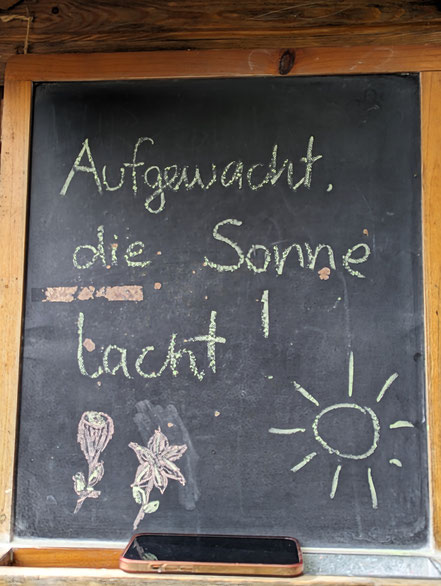 Aufgewacht,
die Sonne
lacht!